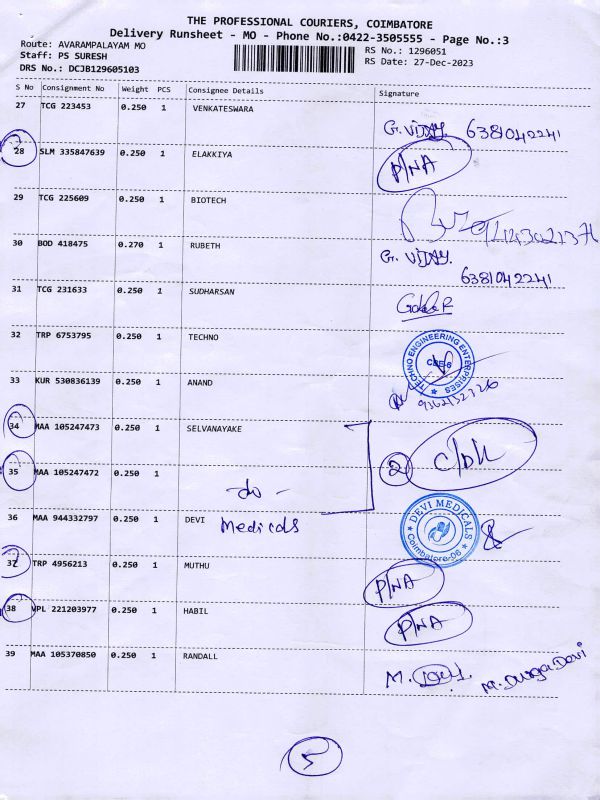 THE PROFESSIONAL COURIERS, COIMBATORE
Delivery Runsheet - MO - Phone No.:0422-3505555 - Page No.:3
Route: AVARAMPALAYAM MO
RS No.: 1296051
Staff: PS SURESH
RS Date: 27-Dec-2023
DRS No.: DCJB129605103
S No Consignment No Weight PCS Consignee Details Signature
27 TCG 223453 0.250 1 VENKATESWARA
G. VIJAY. 6381042241
28 SLM 335847639 0.250 1 ELAKKIYA P/NA
29 TCG 225609 0.250 1 BIOTECH
30 BOD 418475 0.270 1 RUBETH G. VIJAY.
6381042241
31 TCG 231633 0.250 1 SUDHARSAN
32 TRP 6753795 0.250 1 TECHNO
TECHNO ENGINEERING ENTERPRISES
CBE-6
33 KUR 530836139 0.250 1 ANAND
34 MAA 105247473 0.250 1 SELVANAYAKE
2 C/DL
35 MAA 105247472 0.250 1 - do -
36 MAA 944332797 0.250 1 DEVI Medicals
DEVI MEDICALS
Coimbatore-06
37 TRP 4956213 0.250 1 MUTHU P/NA
38 VPL 221203977 0.250 1 HABIL P/NA
39 MAA 105370850 0.250 1 RANDALL
M. Durga Devi
5